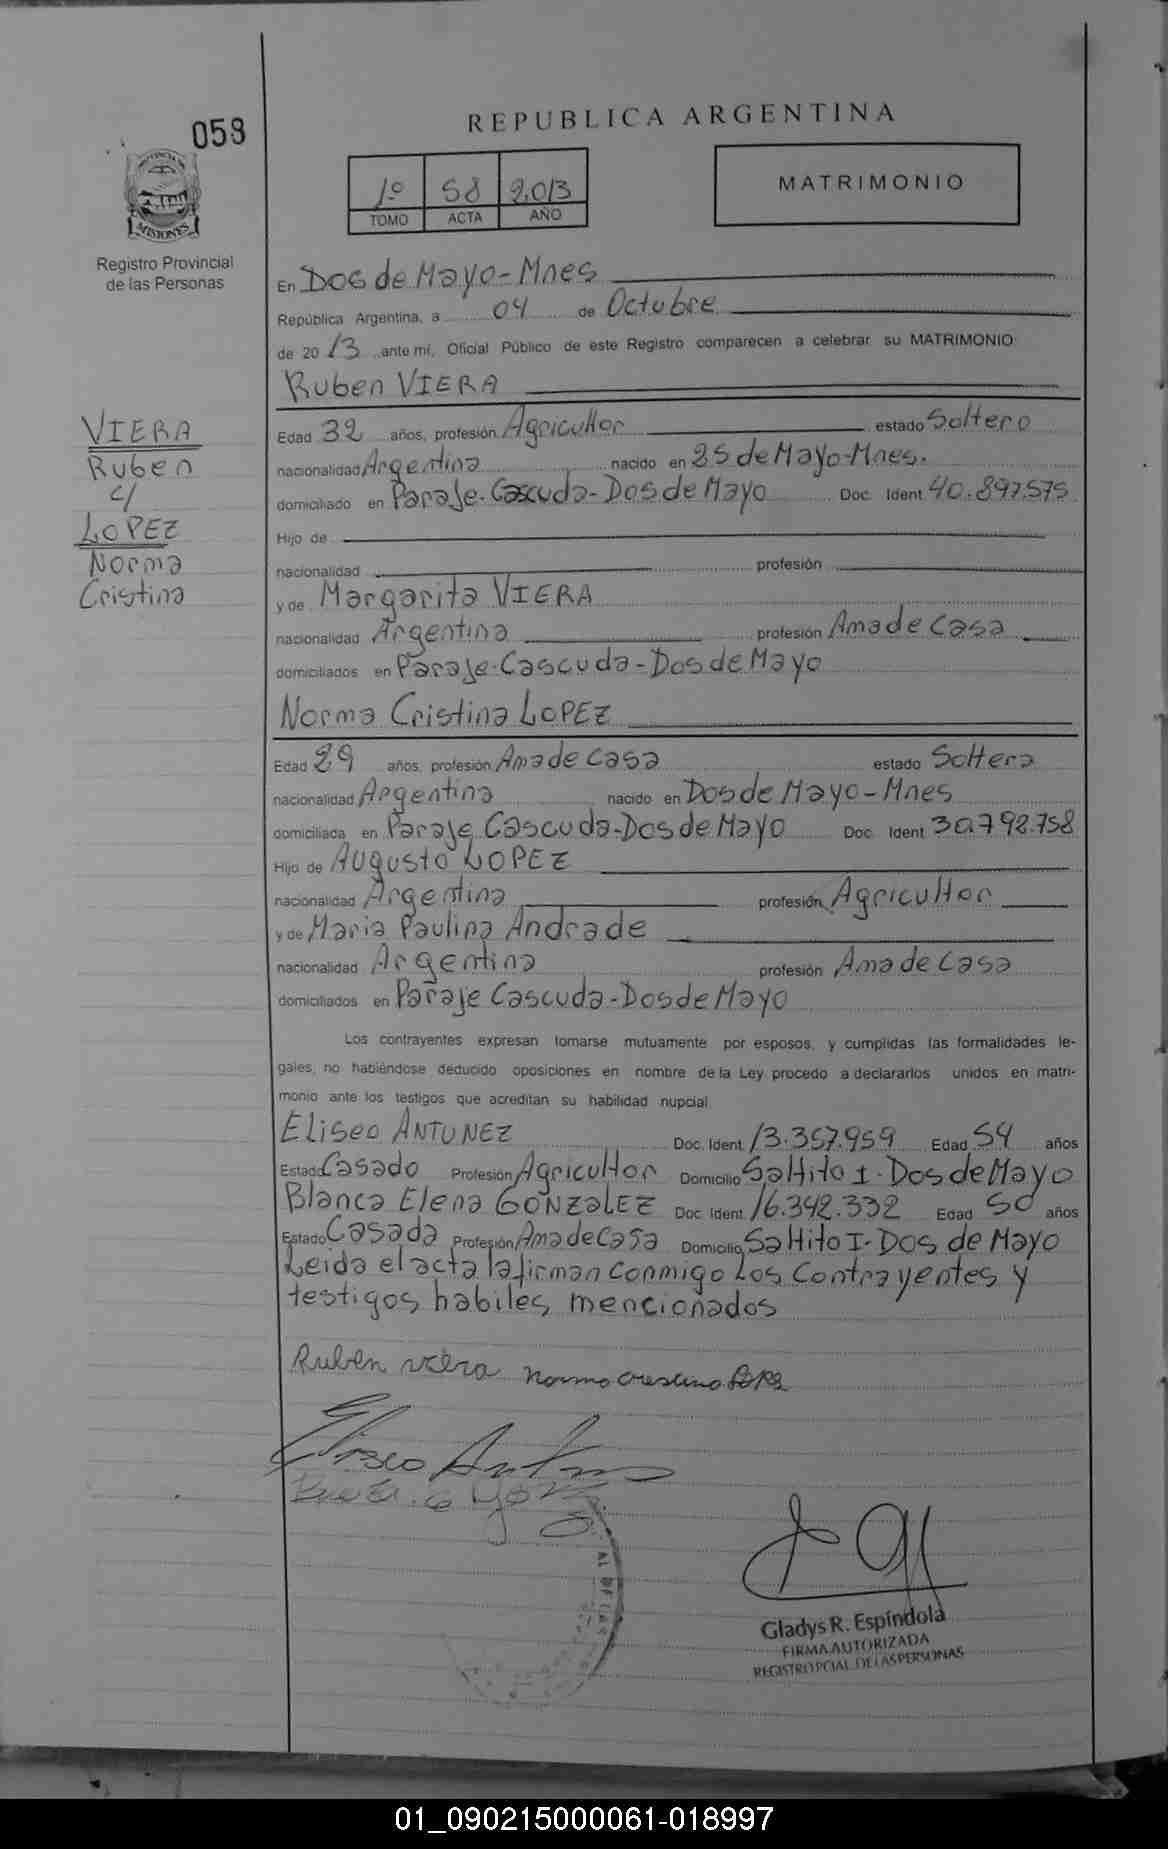 058
REPUBLICA ARGENTINA
1º 58 2.013
TOMO ACTA AÑO
MATRIMONIO
MISIONES
Registro Provincial
de las Personas
En Dos de Mayo-Mnes
República Argentina, a 04 de Octubre
de 20 13 ante mí, Oficial Público de este Registro comparecen a celebrar su MATRIMONIO
Ruben VIERA
VIERA
Ruben
c/
LOPEZ
Norma
Cristina
Edad 32 años, profesión Agricultor estado Soltero
nacionalidad Argentina nacido en 25 de Mayo-Mnes.
domiciliado en Paraje-Cascuda-Dos de Mayo Doc. Ident 40.897.575
Hijo de
nacionalidad profesión
y de Margarita VIERA
nacionalidad Argentina profesión Ama de Casa
domiciliados en Paraje-Cascuda-Dos de Mayo
Norma Cristina LOPEZ
Edad 29 años, profesión Ama de Casa estado Soltera
nacionalidad Argentina nacido en Dos de Mayo-Mnes
domiciliada en Paraje Cascuda-Dos de Mayo Doc. Ident 30.792.758
Hijo de Augusto LOPEZ
nacionalidad Argentina profesión Agricultor
y de Maria Paulina Andrade
nacionalidad Argentina profesión Ama de Casa
domiciliados en Paraje Cascuda-Dos de Mayo
Los contrayentes expresan tomarse mutuamente por esposos, y cumplidas las formalidades le-
gales, no habiéndose deducido oposiciones en nombre de la Ley procedo a declararlos unidos en matri-
monio ante los testigos que acreditan su habilidad nupcial
Eliseo ANTUNEZ Doc. Ident. 13.357.959 Edad 54 años
Estado Casado Profesión Agricultor Domicilio Saltito I-Dos de Mayo
Blanca Elena GONZALEZ Doc. Ident. 16.342.332 Edad 50 años
Estado Casada Profesión Ama de Casa Domicilio Saltito I-Dos de Mayo
Leida el acta la firman conmigo Los Contrayentes y
testigos habiles mencionados
Ruben viera Norma Crestina
Eliseo
Gladys R. Espíndola
FIRMA AUTORIZADA
REGISTRO PCIAL. DE LAS PERSONAS
01_090215000061-018997